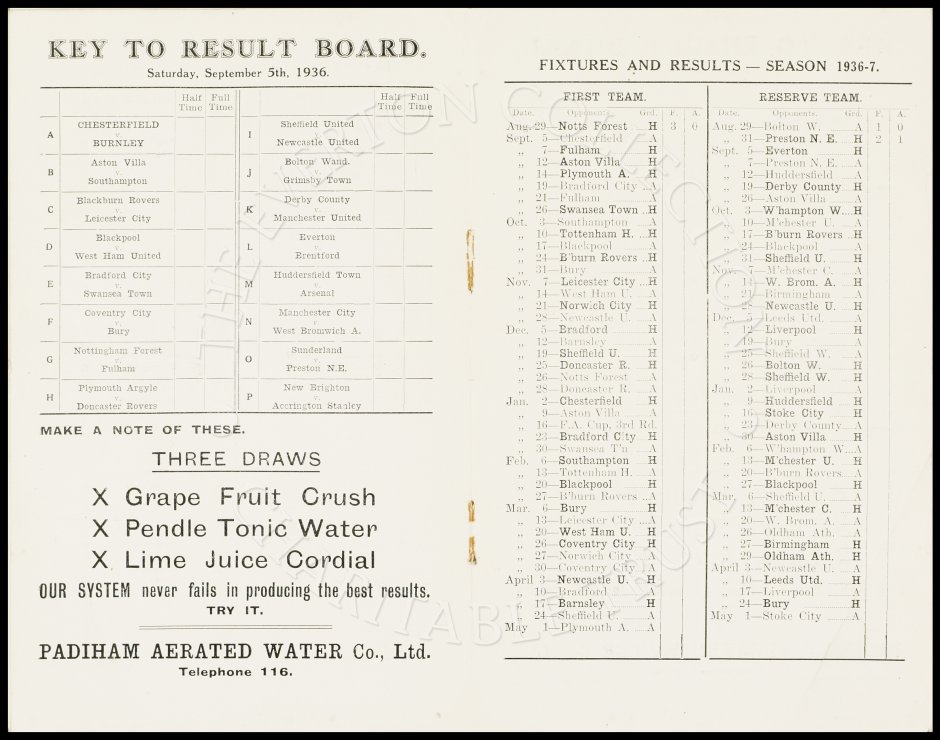 KEY TO RESULT BOARD.
Saturday, September 5th, 1936.
Half Time Full Time
A CHESTERFIELD
v.
BURNLEY
B Aston Villa
v.
Southampton
C Blackburn Rovers
v.
Leicester City
D Blackpool
v.
West Ham United
E Bradford City
v.
Swansea Town
F Coventry City
v.
Bury
G Nottingham Forest
v.
Fulham
H Plymouth Argyle
v.
Doncaster Rovers
Half Time Full Time
I Sheffield United
v.
Newcastle United
J Bolton Wand.
v.
Grimsby Town
K Derby County
v.
Manchester United
L Everton
v.
Brentford
M Huddersfield Town
v.
Arsenal
N Manchester City
v.
West Bromwich A.
O Sunderland
v.
Preston N.E.
P New Brighton
v.
Accrington Stanley
MAKE A NOTE OF THESE.
THREE DRAWS
X Grape Fruit Crush
X Pendle Tonic Water
X Lime Juice Cordial
OUR SYSTEM never fails in producing the best results.
TRY IT.
PADIHAM AERATED WATER Co., Ltd.
Telephone 116.
FIXTURES AND RESULTS — SEASON 1936-7.
FIRST TEAM.
Date. Opponents. Grd. F. A.
Aug. 29—Notts Forest H 3 0
Sept. 5—Chesterfield A
„ 7—Fulham H
„ 12—Aston Villa H
„ 14—Plymouth A. H
„ 19—Bradford City A
„ 21—Fulham A
„ 26—Swansea Town H
Oct. 3—Southampton A
„ 10—Tottenham H. H
„ 17—Blackpool A
„ 24—B'burn Rovers H
„ 31—Bury A
Nov. 7—Leicester City H
„ 14—West Ham U. A
„ 21—Norwich City H
„ 28—Newcastle U. A
Dec. 5—Bradford H
„ 12—Barnsley A
„ 19—Sheffield U. H
„ 25—Doncaster R. H
„ 26—Notts Forest A
„ 28—Doncaster R. A
Jan. 2—Chesterfield H
„ 9—Aston Villa A
„ 16—F.A. Cup, 3rd Rd.
„ 23—Bradford City H
„ 30—Swansea T'n A
Feb. 6—Southampton H
„ 13—Tottenham H. A
„ 20—Blackpool H
„ 27—B'burn Rovers A
Mar. 6—Bury H
„ 13—Leicester City A
„ 20—West Ham U. H
„ 26—Coventry City H
„ 27—Norwich City A
„ 30—Coventry City A
April 3—Newcastle U. H
„ 10—Bradford A
„ 17—Barnsley H
„ 24—Sheffield U. A
May 1—Plymouth A. A
RESERVE TEAM.
Date. Opponents. Grd. F. A.
Aug. 29—Bolton W. A 1 0
„ 31—Preston N. E. H 2 1
Sept. 5—Everton H
„ 7—Preston N. E. A
„ 12—Huddersfield A
„ 19—Derby County H
„ 26—Aston Villa A
Oct. 3—W'hampton W. H
„ 10—M'chester U. A
„ 17—B'burn Rovers H
„ 24—Blackpool A
„ 31—Sheffield U. H
Nov. 7—M'chester C. A
„ 14—W. Brom. A. H
„ 21—Birmingham A
„ 28—Newcastle U. H
Dec. 5—Leeds Utd. A
„ 12—Liverpool H
„ 19—Bury A
„ 25—Sheffield W. A
„ 26—Bolton W. H
„ 28—Sheffield W. H
Jan. 2—Liverpool A
„ 9—Huddersfield H
„ 16—Stoke City H
„ 23—Derby County A
„ 30—Aston Villa H
Feb. 6—W'hampton W. A
„ 13—M'chester U. H
„ 20—B'burn Rovers A
„ 27—Blackpool H
Mar. 6—Sheffield U. A
„ 13—M'chester C. H
„ 20—W. Brom. A. A
„ 26—Oldham Ath. A
„ 27—Birmingham H
„ 29—Oldham Ath. H
April 3—Newcastle U. A
„ 10—Leeds Utd. H
„ 17—Liverpool A
„ 24—Bury H
May 1—Stoke City A
THE EVERTON COLLECTION
CHARITABLE TRUST